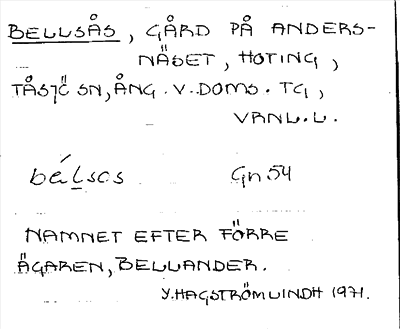 BELLSÅS, GÅRD PÅ ANDERS-
NÄSET, HOTING,
TÅSJÖ SN, ÅNG. V. DOMS. TG,
VRNL.L.
bélsos Gn 54
NAMNET EFTER FÖRRE
ÄGAREN, BELLANDER.
Y. HAGSTRÖM LINDH 1971.